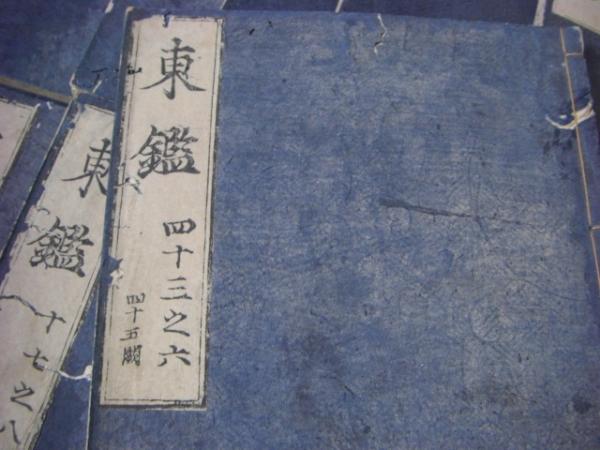 東鑑 四十三之六
四十五闕
東鑑 十七之八